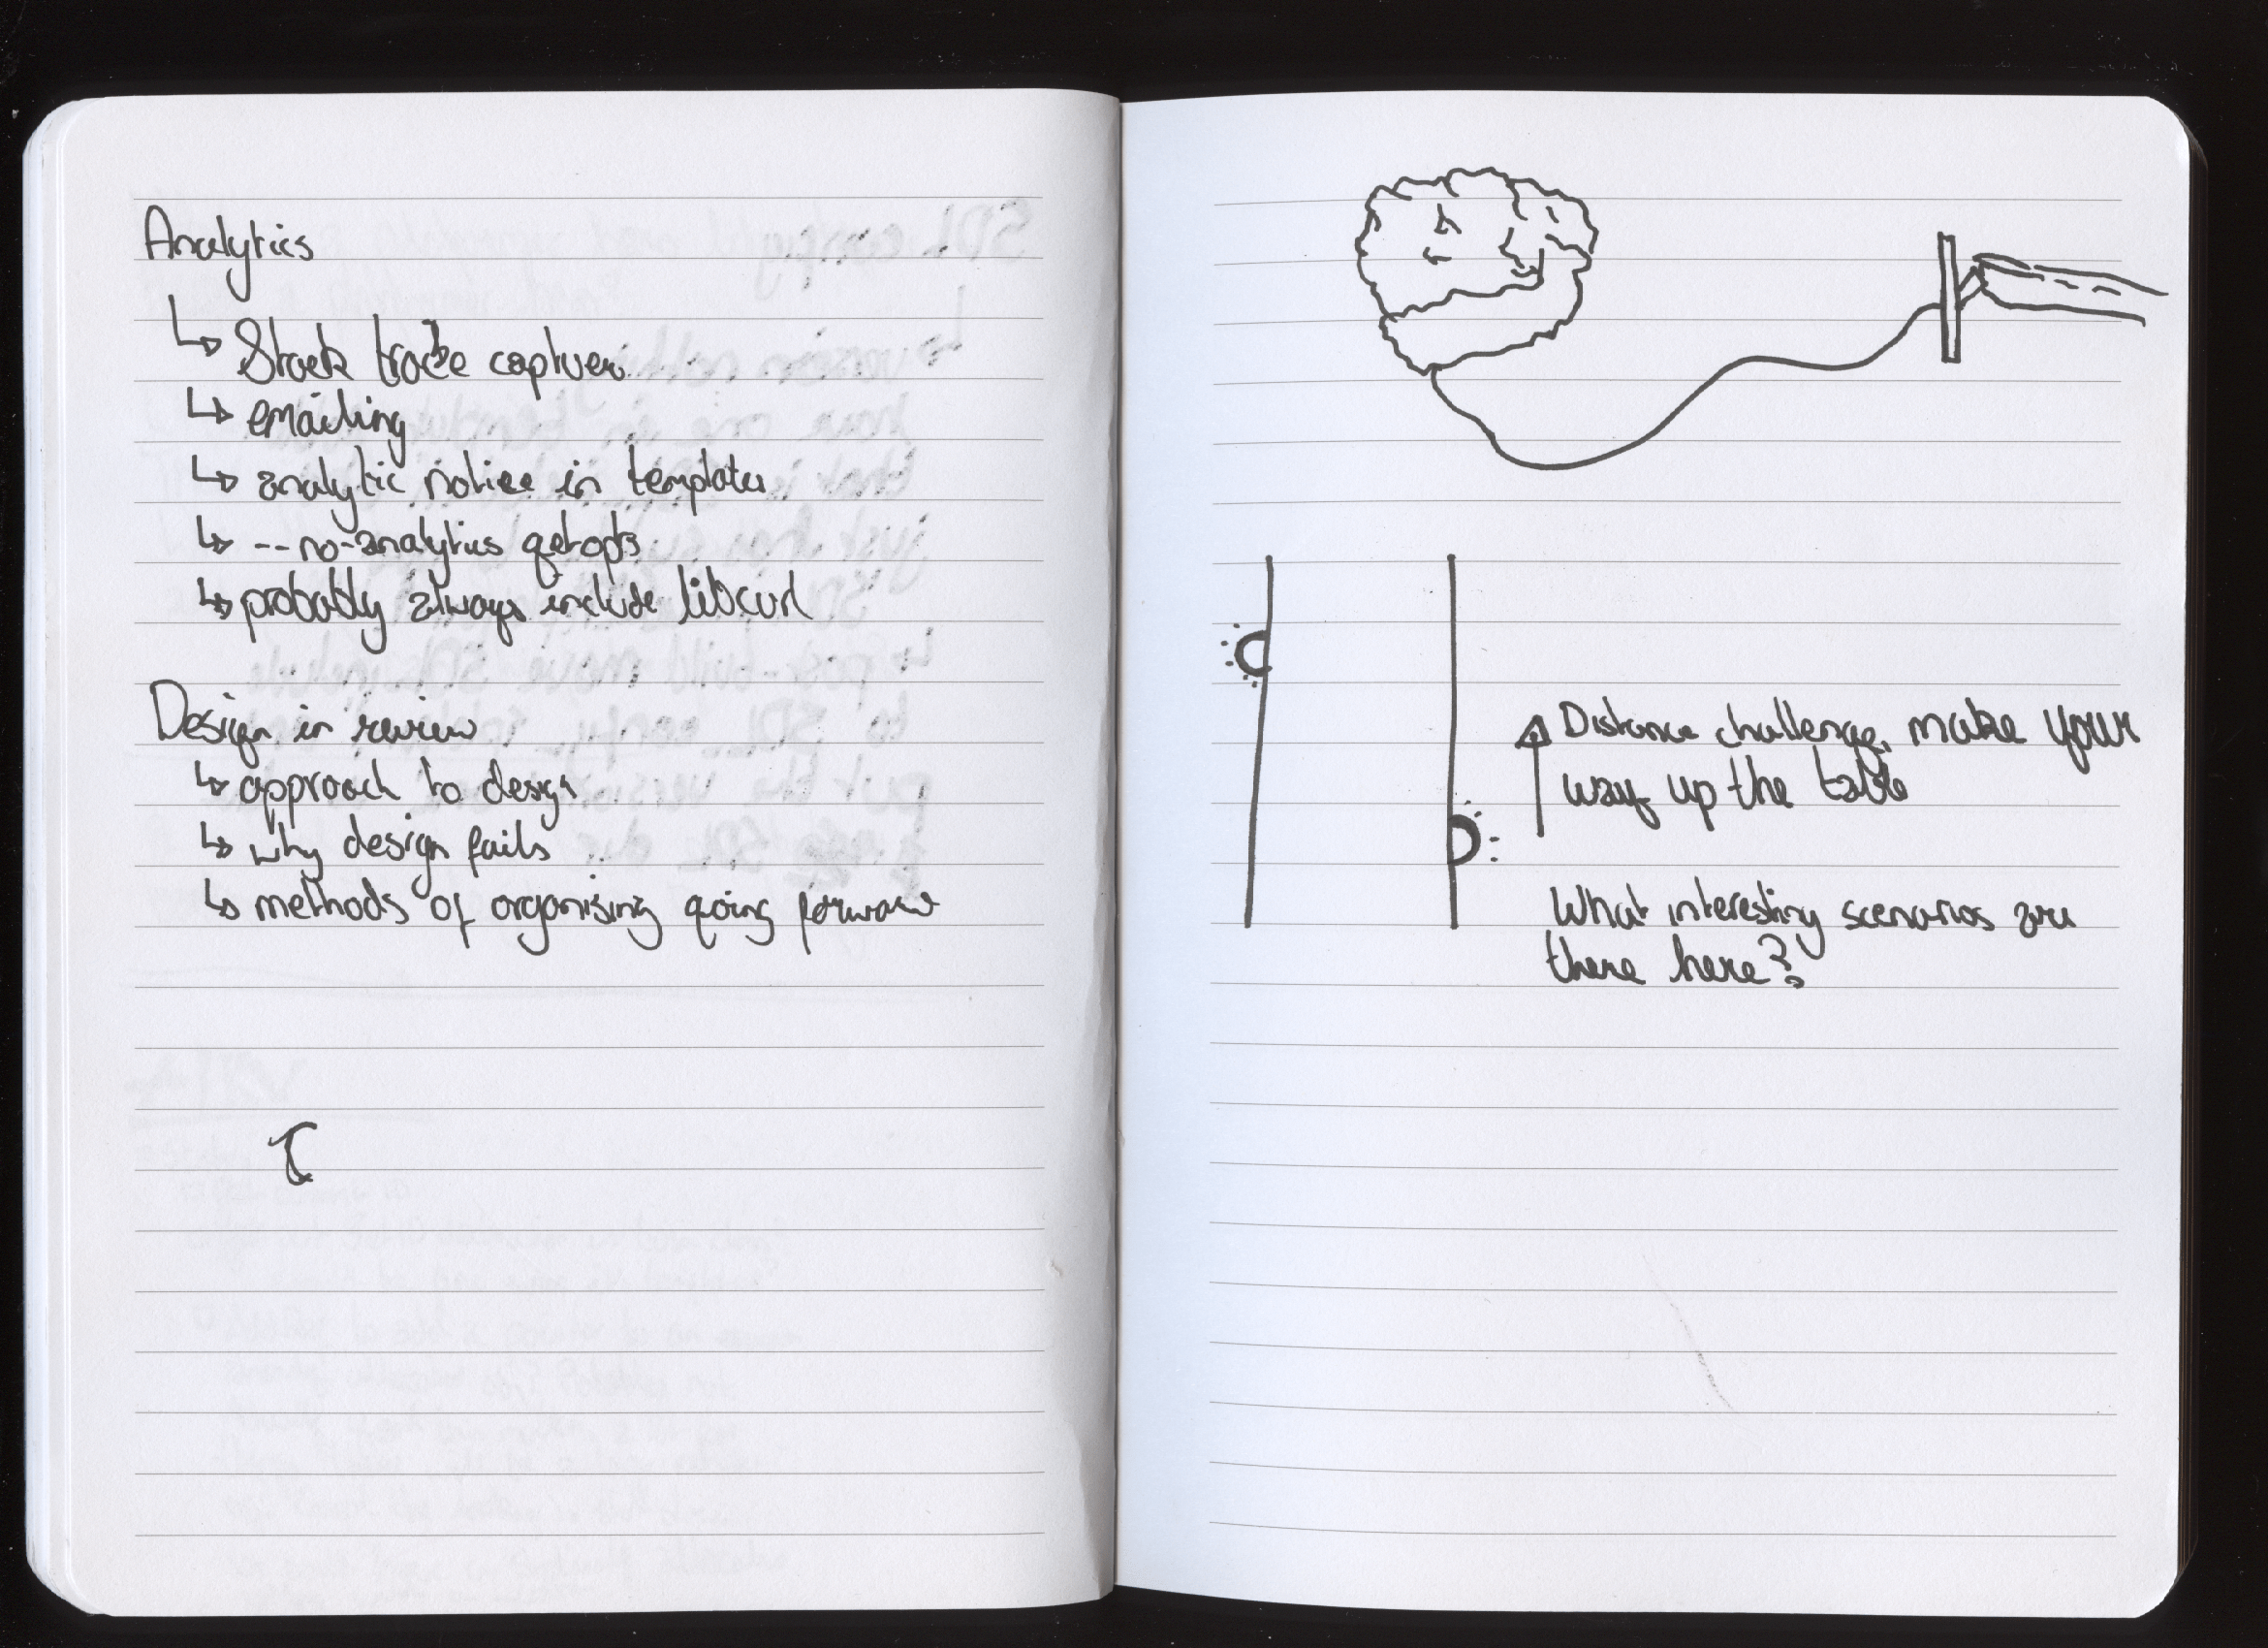 Analytics
↳ Stack trace capturer
↳ emailing
↳ analytic notice in template
↳ --no-analytics getopts
↳ probably always include libcurl
Design in review
↳ approach to design
↳ why design fails
↳ methods of organising going forward
Distance challenge, make your
way up the table
What interesting scenarios are
there here?